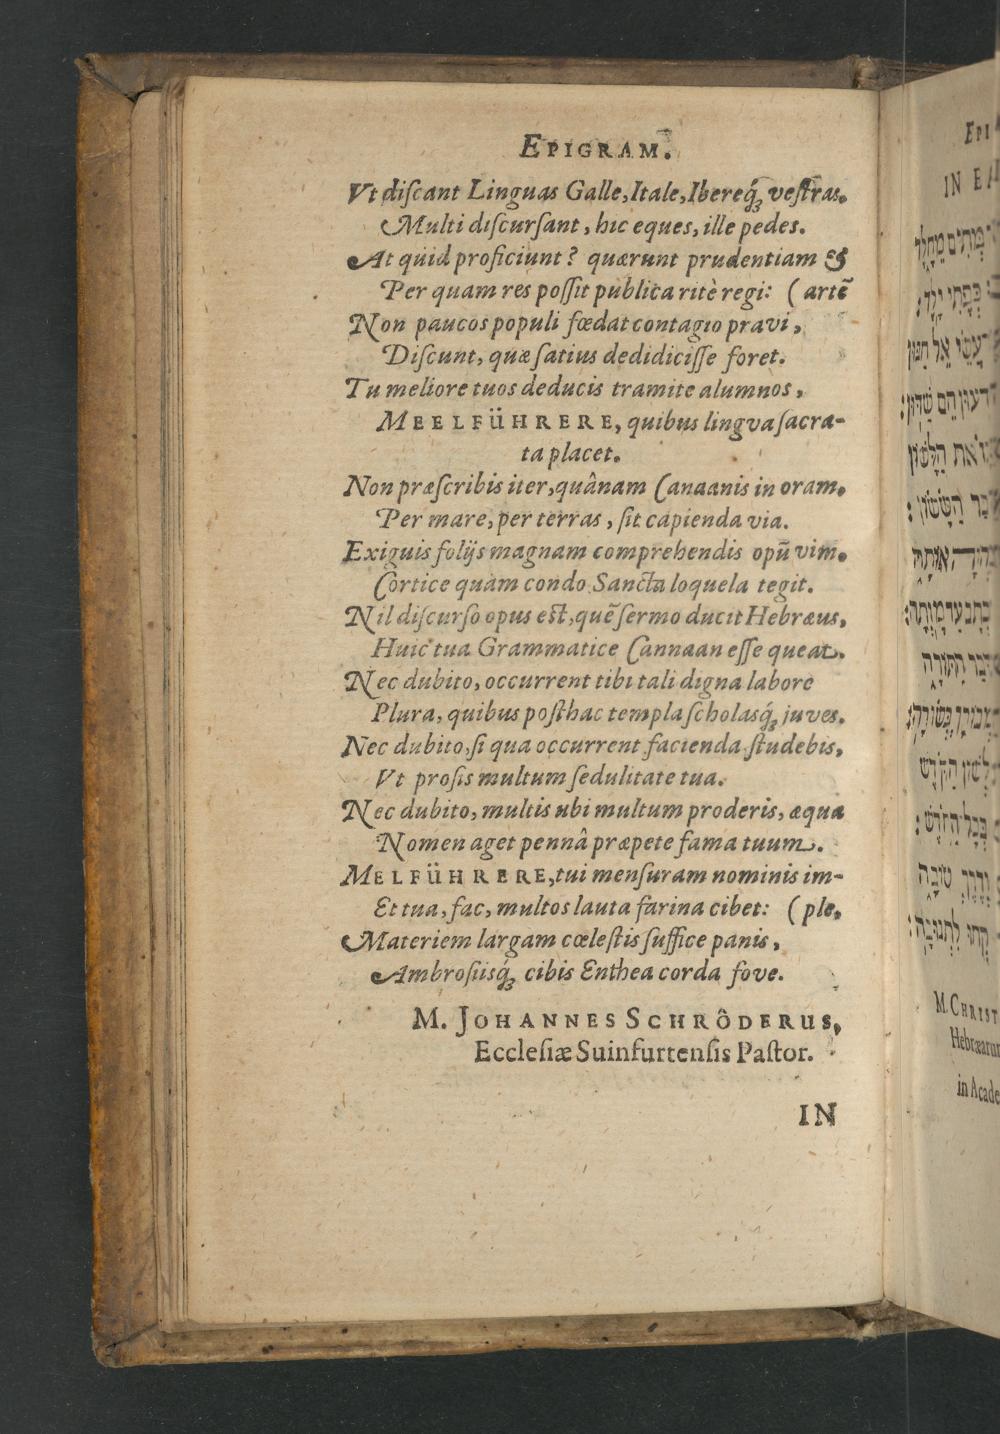 EPIGRAM.
Vt diſcant Linguas Galle, Itale, Ibereq́ꝫ veſtras.
Multi diſcurſant, hic eques, ille pedes.
At quid proficiunt? quærunt prudentiam &
Per quam res poſſit publica ritè regi: (artẽ
Non paucos populi fœdat contagio pravi,
Diſcunt, quæ ſatius dedidiciſſe foret.
Tu meliore tuos deducis tramite alumnos,
MEELFÜHRERE, quibus lingva ſacra-
ta placet.
Non præſcribis iter, quânam Canaanis in oram.
Per mare, per terras, ſit capienda via.
Exiguis folijs magnam comprehendis opũ vim.
Cortice quam condo Sancta loquela tegit.
Nil diſcurſo opus est, quẽ ſermo ducit Hebræus,
Huic tua Grammatice Cannaan eſſe queat.
Nec dubito, occurrent tibi tali digna labore
Plura, quibus poſthac templa ſcholasq́ꝫ juves.
Nec dubito, ſi qua occurrent facienda ſtudebis,
Vt proſis multum ſedulitate tua.
Nec dubito, multis ubi multum proderis, æqua
Nomen aget pennâ præpete fama tuum.
MELFÜHRERE, tui menſuram nominis im-
Et tua, fac, multos lauta farina cibet: (ple,
Materiem largam cœleſtis ſuffice panis,
Ambroſiisq́ꝫ cibis Enthea corda fove.
M. JOHANNES SCHRÔDERUS,
Eccleſiæ Suinfurtenſis Paſtor.
IN
EPI
IN
M. CHRIST
Hebræarum
in Acade